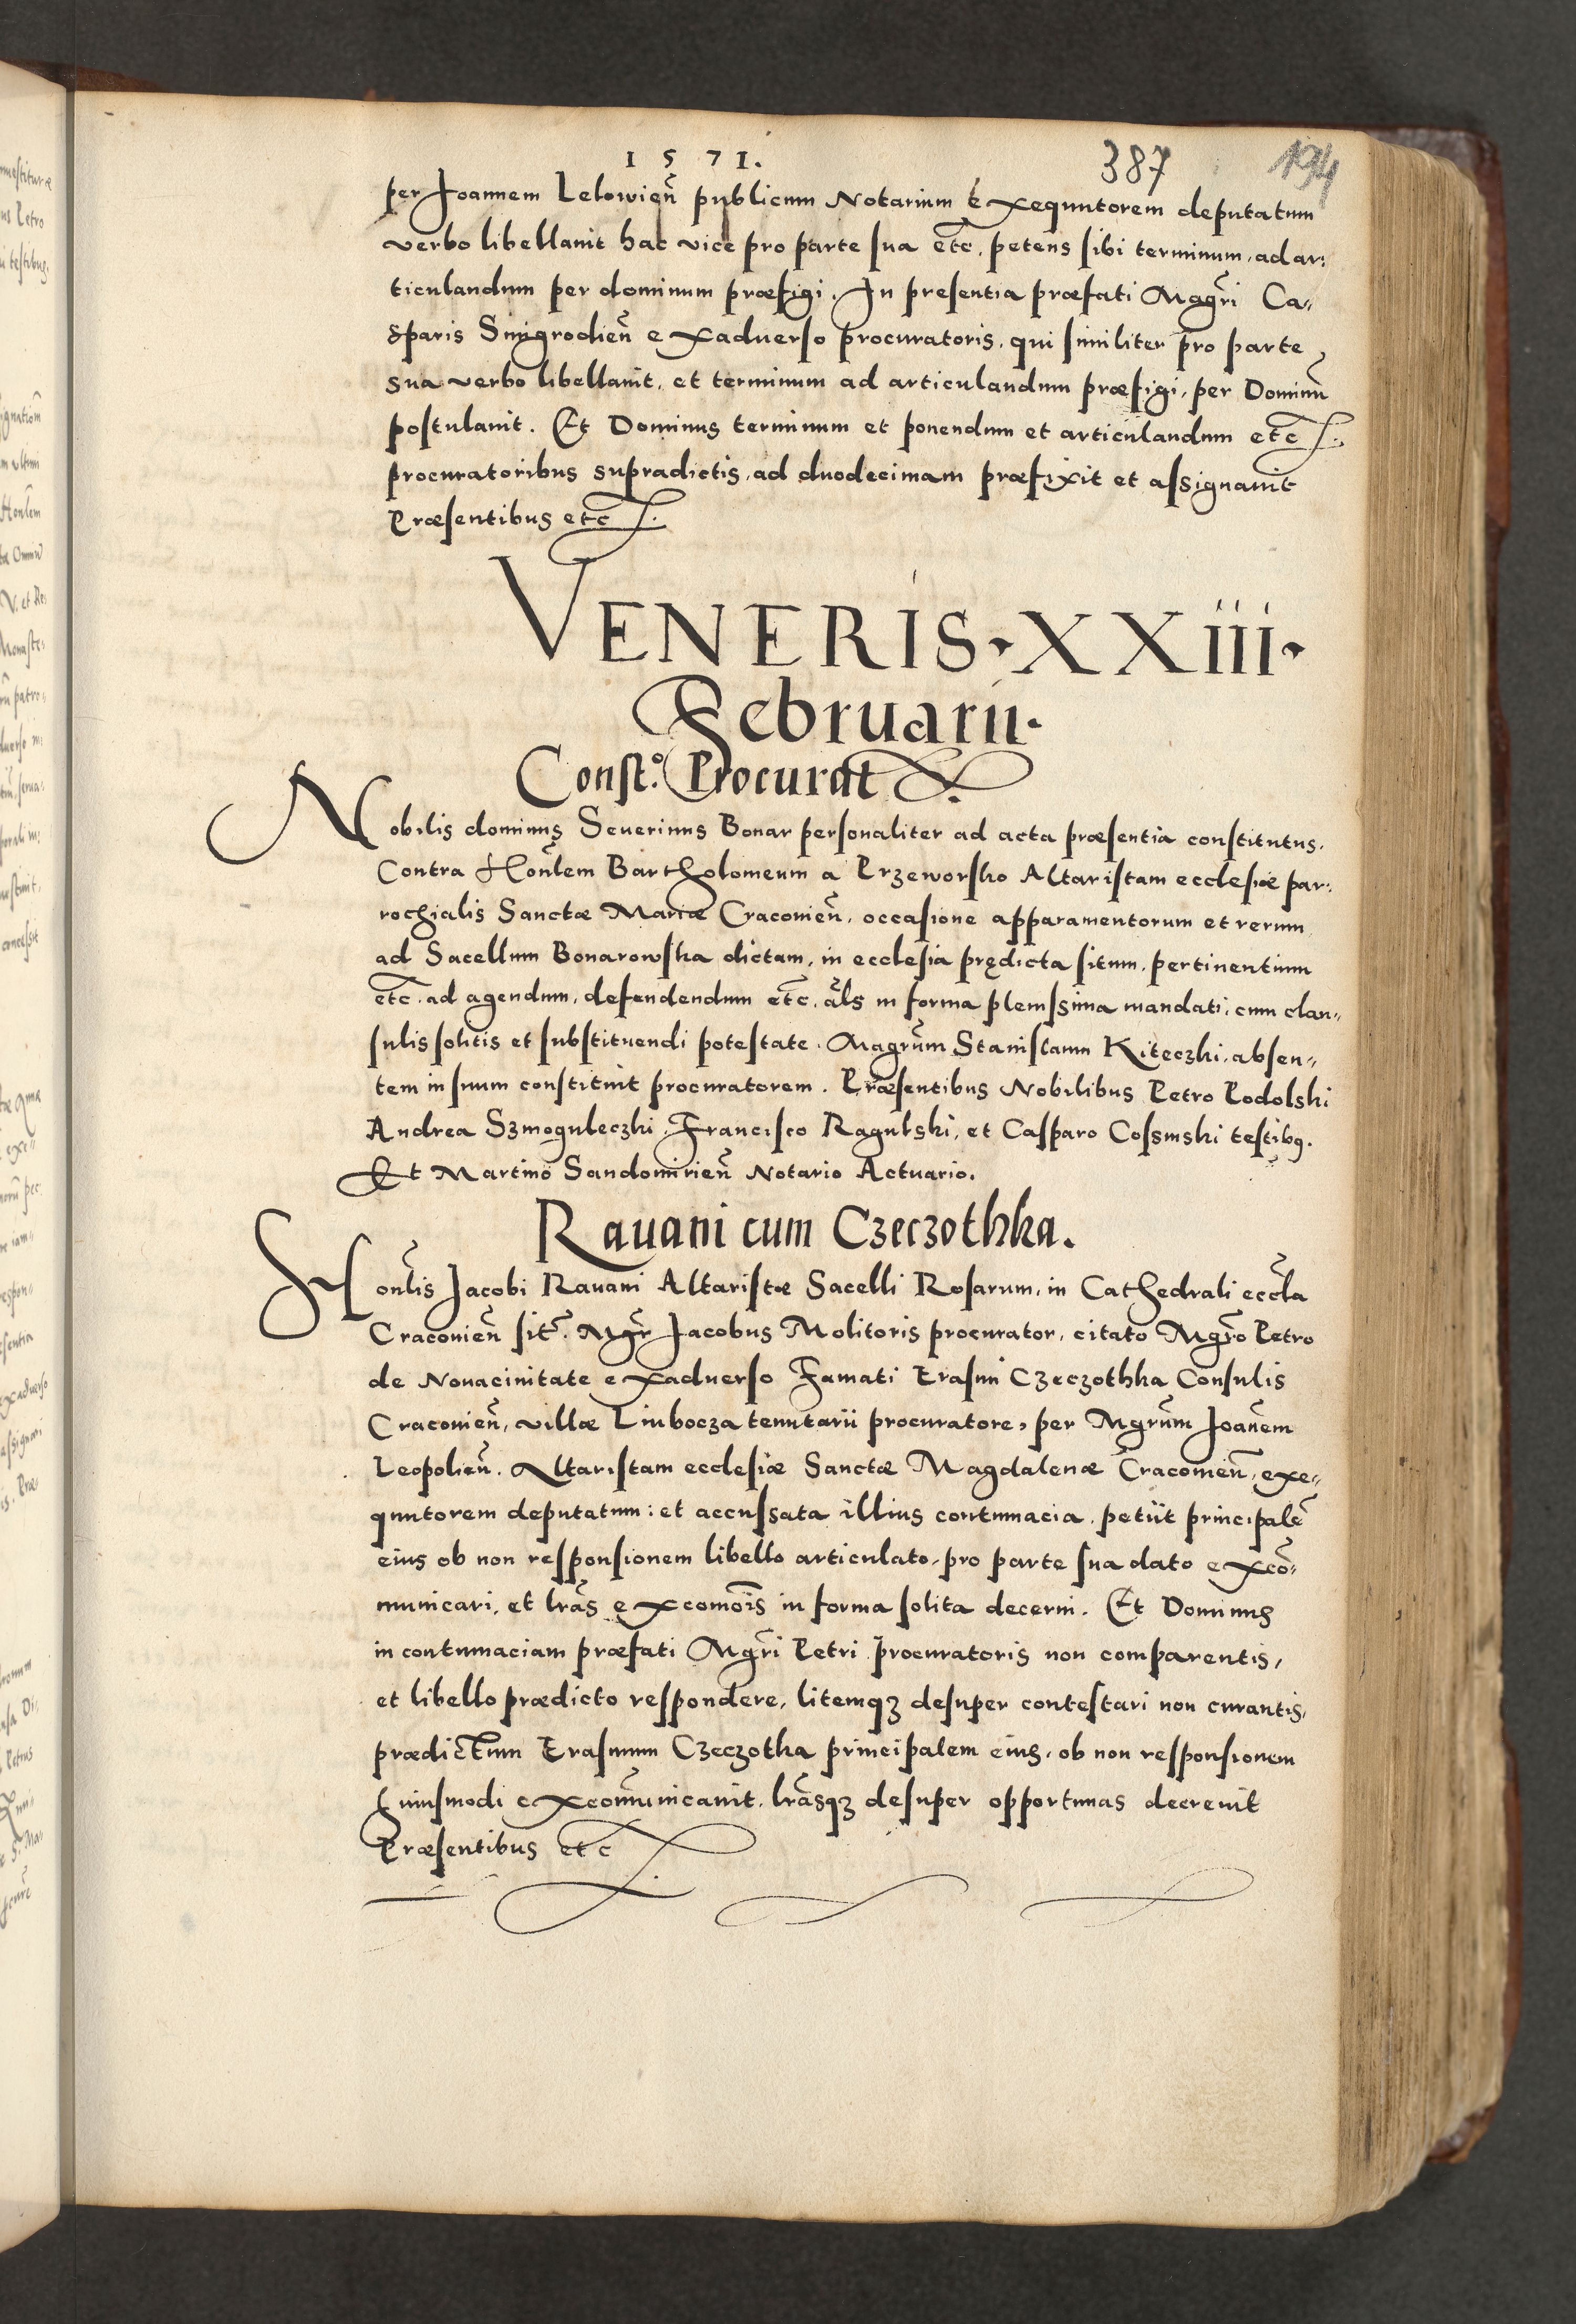 1571.
387
194
per Joannem Lelowień publicum Notarium Exequutorem deputatum
verbo libellauit hac vice pro parte sua etc. petens sibi terminum, ad ar:
ticulandum per dominum præfigi. In presentia præfati Magr̃i Ca„
sparis Snigrodień exaduerso procuratoris, qui similiter pro parte
sua verbo libellauit, et terminum ad articulandum præfigi, per Dominũ
postulauit. Et Dominus terminum et ponendum et articulandum etc
procuratoribus supradictis, ad duodecimam præfixit et assignauit
Præsentibus etc
VENERIS · XXIII ·
Februarii ·
Const.º Procurat
Nobilis dominus Seuerinus Bonar personaliter ad acta præsentia constitutus.
Contra Honl̃em Bartholomeum a Przeworsko Altaristam ecclesiæ par:
rochialis Sanctæ Mariæ Cracouień, occasione apparamentorum et rerum
ad Sacellum Bonarowska dictam, in ecclesia prędicta situm, pertinentium
etc. ad agendum, defendendum etc. al̃s in forma plenissima mandati, cum clau„
sulis solitis et substituendi potestate. Magr̃um Stanislaum Kiteczki, absen„
tem in suum constituit procuratorem. Præsentibus Nobilibus Petro Podolski
Andrea Szmoguleczki, Francisco Ragulski, et Casparo Cosinski testibq.
Et Martino Sandomirień Notario Actuario.
Rauani cum Czeczothka.
Honl̃is Jacobi Rauani Altaristæ Sacelli Rosarum, in Cathedrali eccl̃a
Cracouień sit̃. Mgr̃ Jacobus Molitoris procurator, citato Mgr̃o Petro
de Nouaciuitate exaduerso Famati Erasmi Czeczothka Consulis
Cracouień, villæ Liubocza tenutarii procuratore, per Mgr̃um Joañem
Leopolień. Altaristam ecclesiæ Sanctæ Magdalenæ Cracouień, exe„
quutorem deputatum: et accussata illius contumacia, petiit principalẽ
eius ob non responsionem libello articulato, pro parte sua dato excõ„
municari, et lr̃as excomõis in forma solita decerni. Et Dominus
in contumaciam præfati Mgr̃i Petri procuratoris non comparentis,
et libello prædicto respondere, litemqꝫ desuper contestari non curantis,
prædictum Erasmum Czeczotka principalem eius, ob non responsionem
huiusmodi excom̃unicauit, lr̃asqꝫ desuper opportunas decreuit
Præsentibus etc